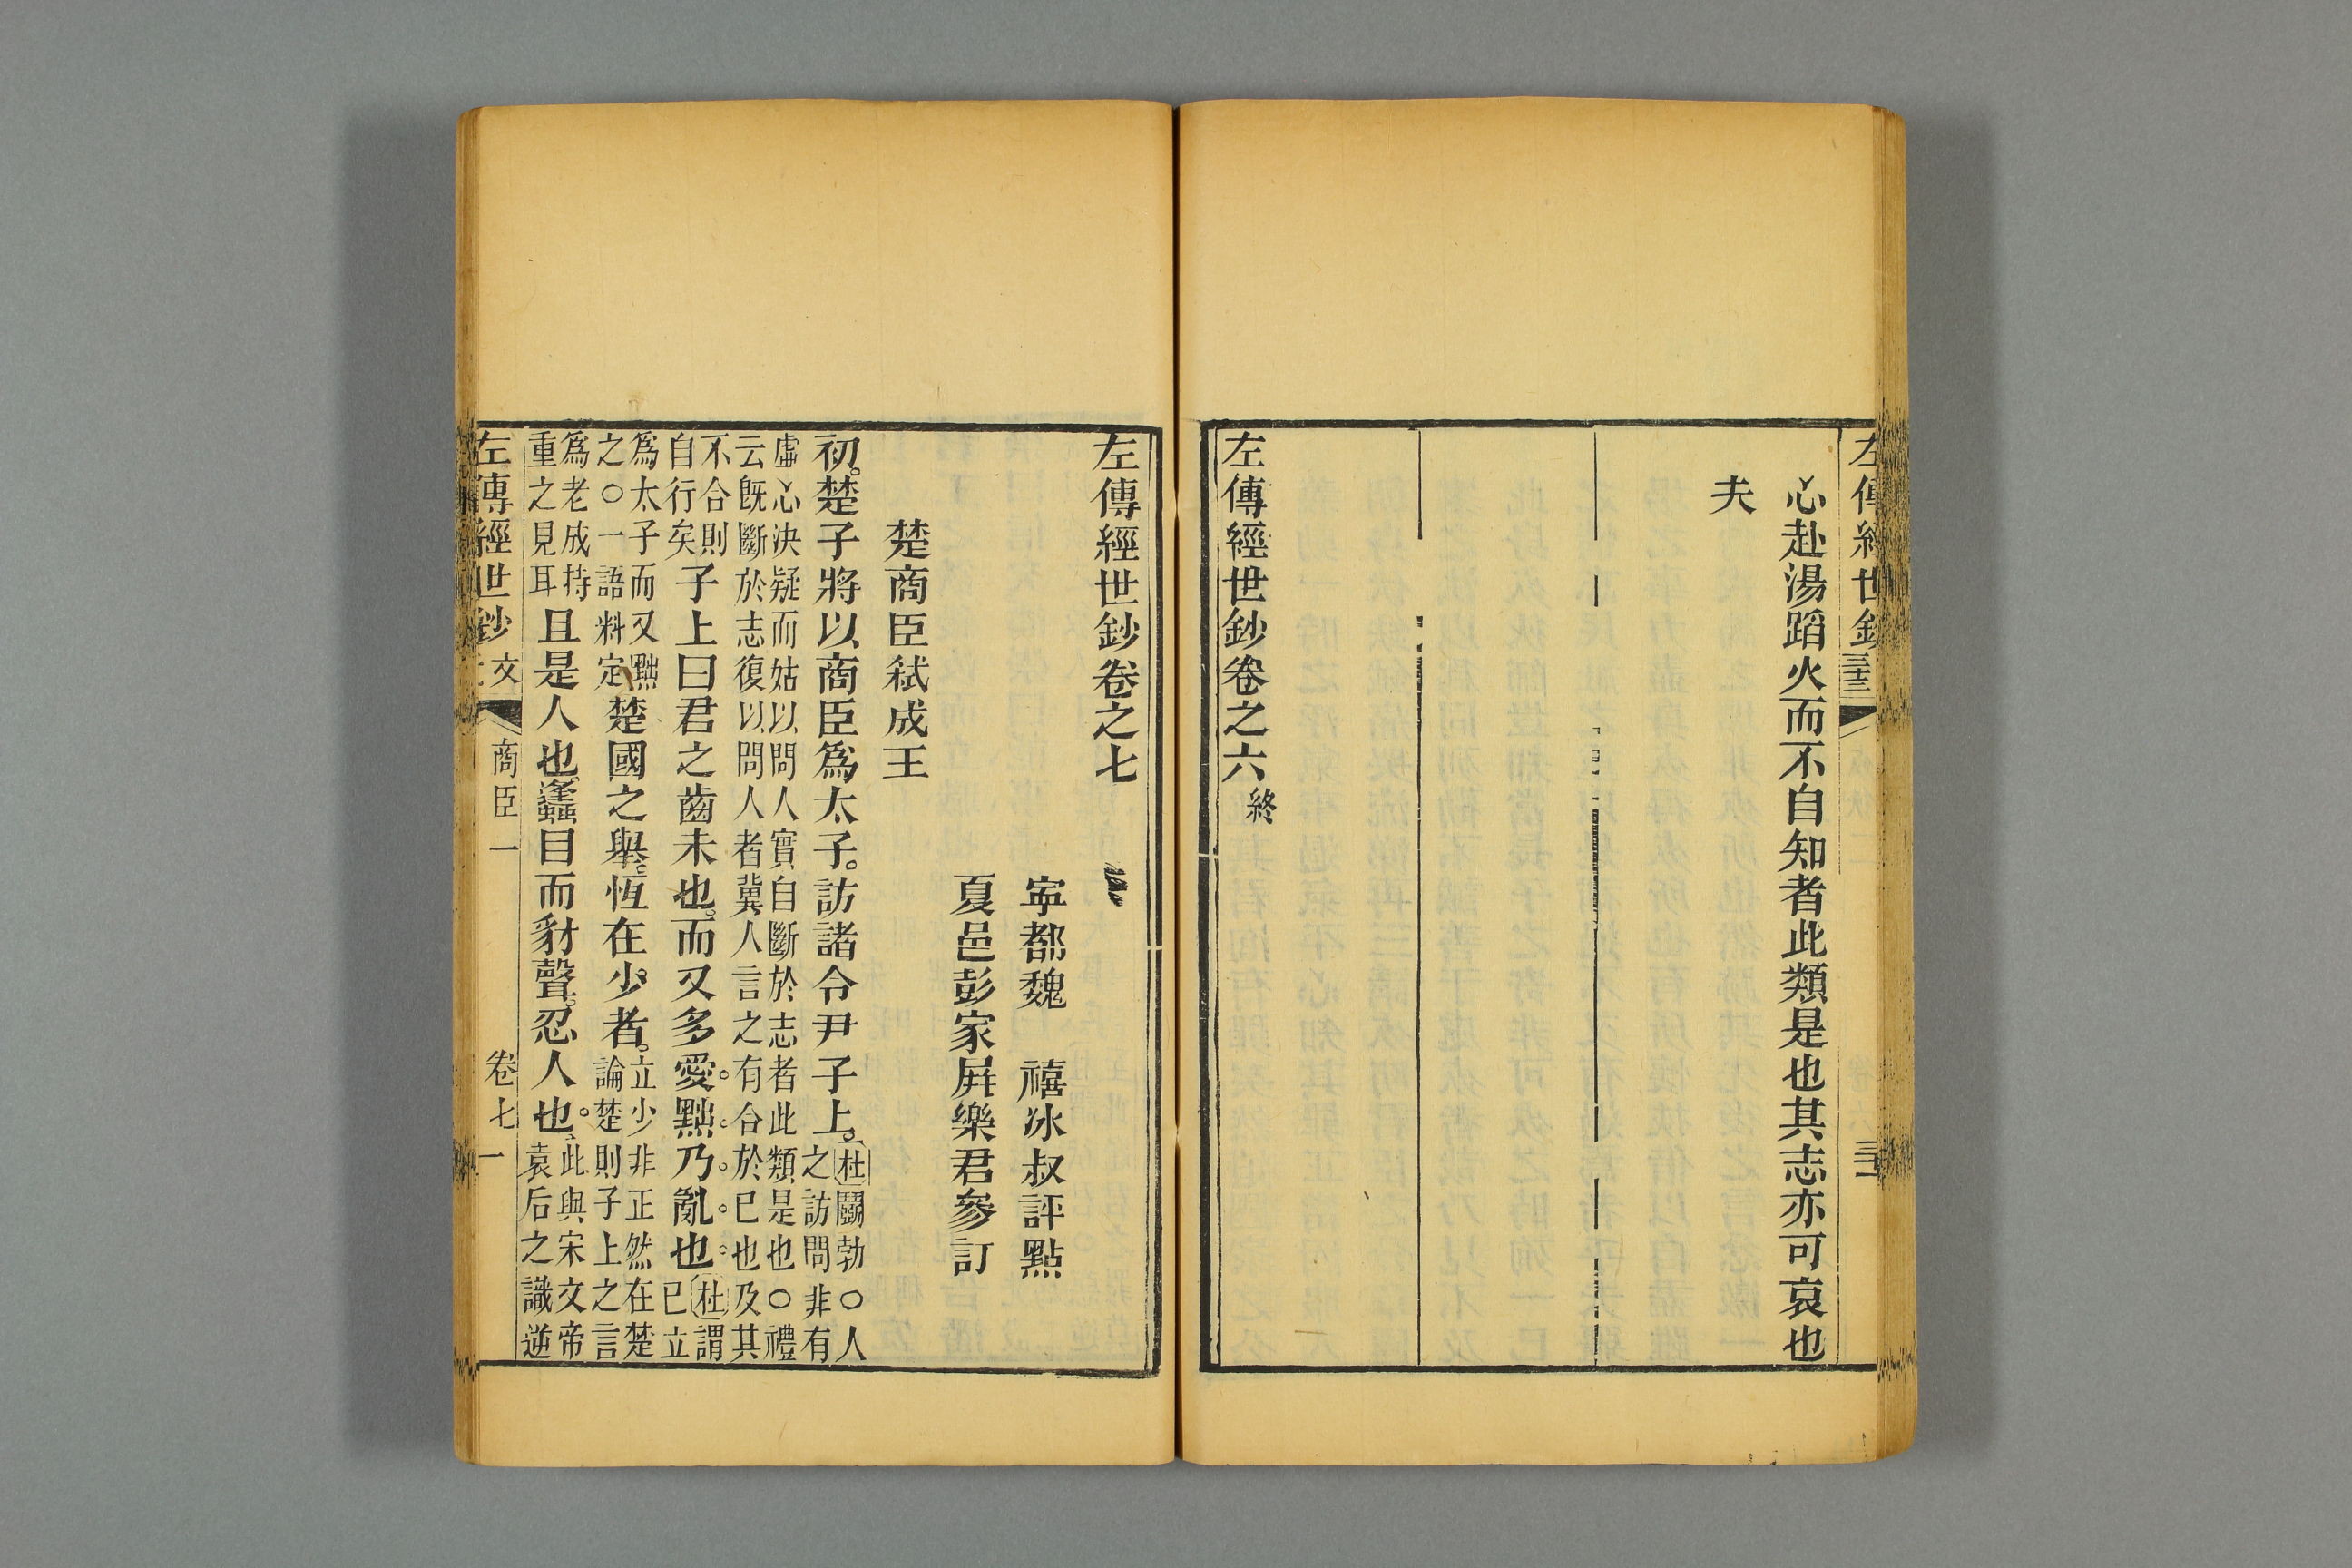 左傳經世鈔
心赴湯蹈火而不自知者此類是也其志亦可哀也
夫
左傳經世鈔卷之六終
左傳經世鈔卷之七
寜都魏 禧冰叔評點
夏邑彭家屛樂君參訂
楚商臣弑成王
初。楚子將以商臣爲太子。訪諸令尹子上。杜鬬勃○人
之訪問非有
虛心決疑而姑以問人實自斷於志者此類是也○禮
云旣斷於志復以問人者冀人言之有合於已也及其
不合則
自行矣
子上曰君之齒未也。而又多愛。黜乃亂也。杜謂
已立
爲太子而又黜
之○一語料定
楚國之舉。恆在少者。立少非正然在楚
論楚則子上之言
爲老成持
重之見耳
且是人也。蠭目而豺聲。忍人也。此與宋文帝
袁后之識逆
左傳經世鈔 文 商臣一 卷七 一